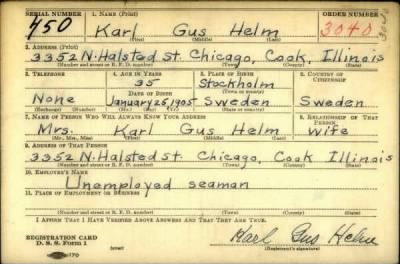 SERIAL NUMBER 1. NAME (Print) ORDER NUMBER
450 Karl Gus Helm 3040
(First) (Middle) (Last)
2. ADDRESS (Print)
3352 N. Halsted St. Chicago, Cook, Illinois
(Number and street or R. F. D. number) (Town) (County) (State)
3. TELEPHONE 4. AGE IN YEARS 5. PLACE OF BIRTH 6. COUNTRY OF CITIZENSHIP
35 Stockholm
DATE OF BIRTH
None January 25, 1905 Sweden Sweden
(Exchange) (Number) (Mo.) (Day) (Yr.) (State or country)
7. NAME OF PERSON WHO WILL ALWAYS KNOW YOUR ADDRESS 8. RELATIONSHIP OF THAT PERSON
Mrs. Karl Gus Helm wife
(Mr., Mrs., Miss) (First) (Middle) (Last)
9. ADDRESS OF THAT PERSON
3352 N. Halsted St. Chicago, Cook Illinois
(Number and street or R. F. D. number) (Town) (County) (State)
10. EMPLOYER'S NAME
Unemployed seaman
11. PLACE OF EMPLOYMENT OR BUSINESS
(Number and street or R. F. D. number) (Town) (County) (State)
I AFFIRM THAT I HAVE VERIFIED ABOVE ANSWERS AND THAT THEY ARE TRUE.
REGISTRATION CARD
D. S. S. Form 1 Karl Gus Helm
(Registrant's signature)